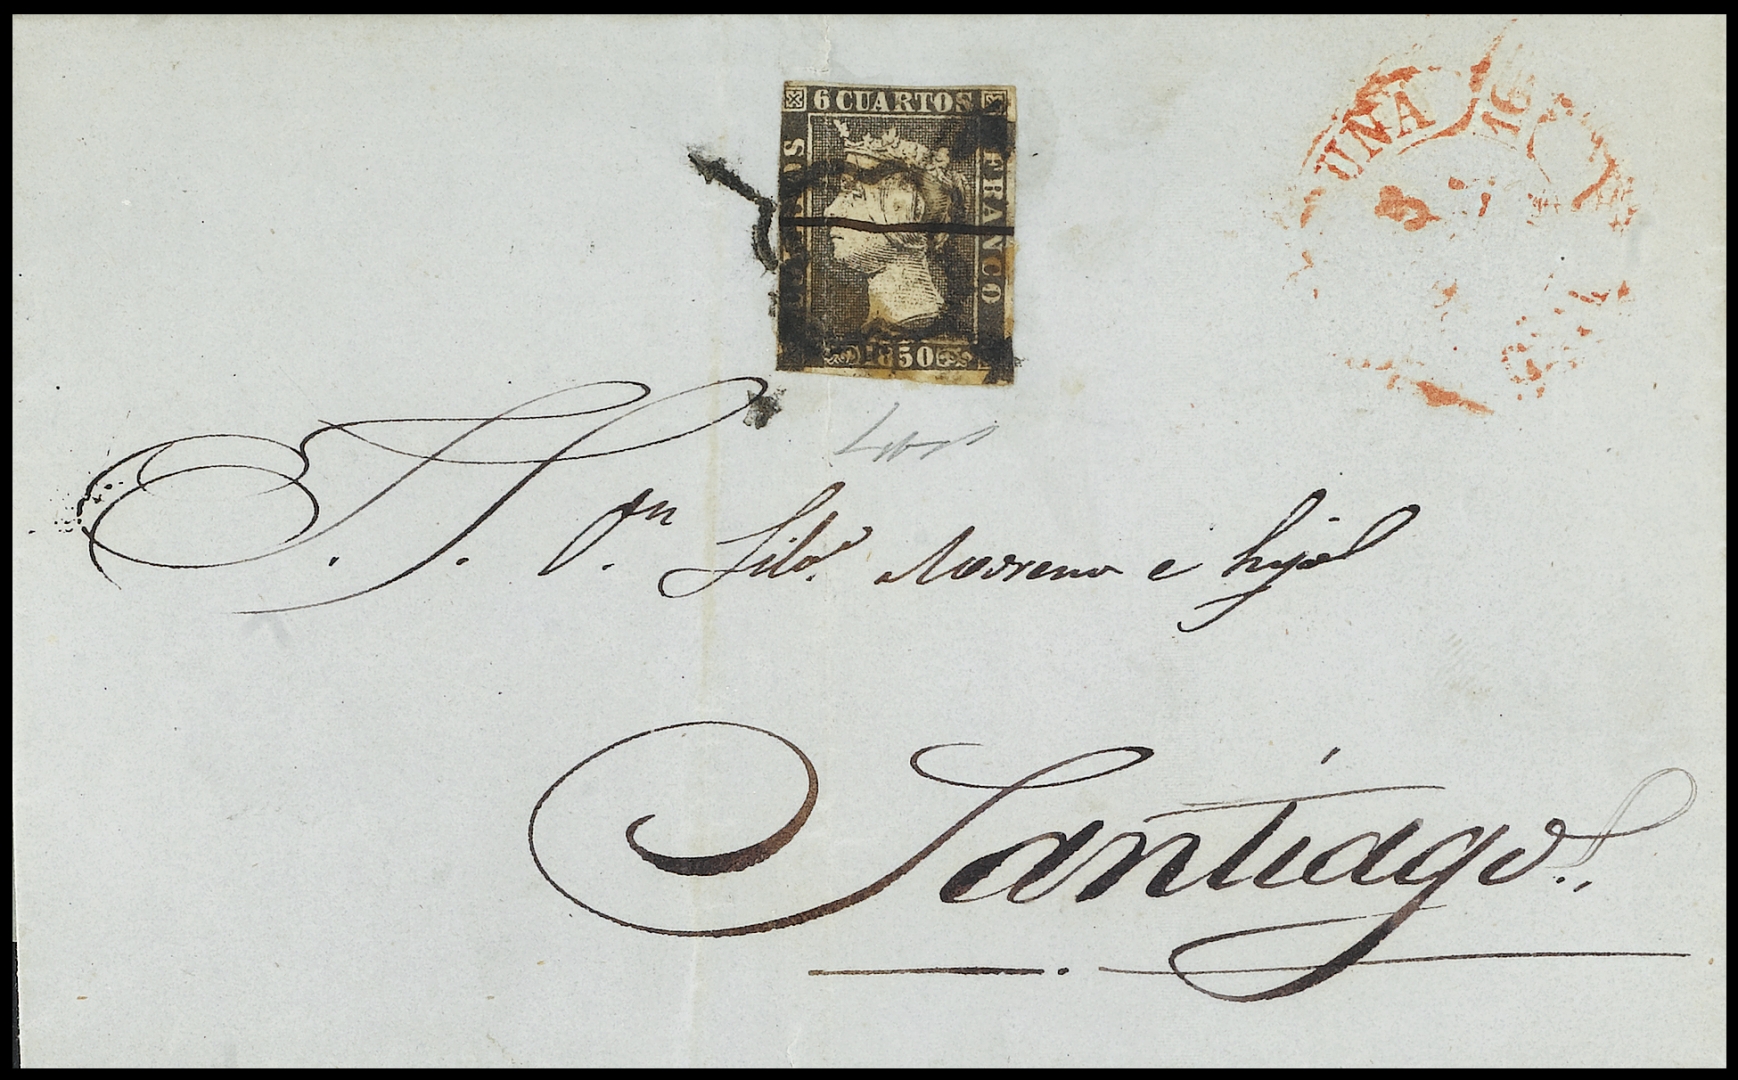 6 CUARTOS
FRANCO
1850
UNA
16
3
S. S. Vn Silv. Moreno e hijos
Santiago.